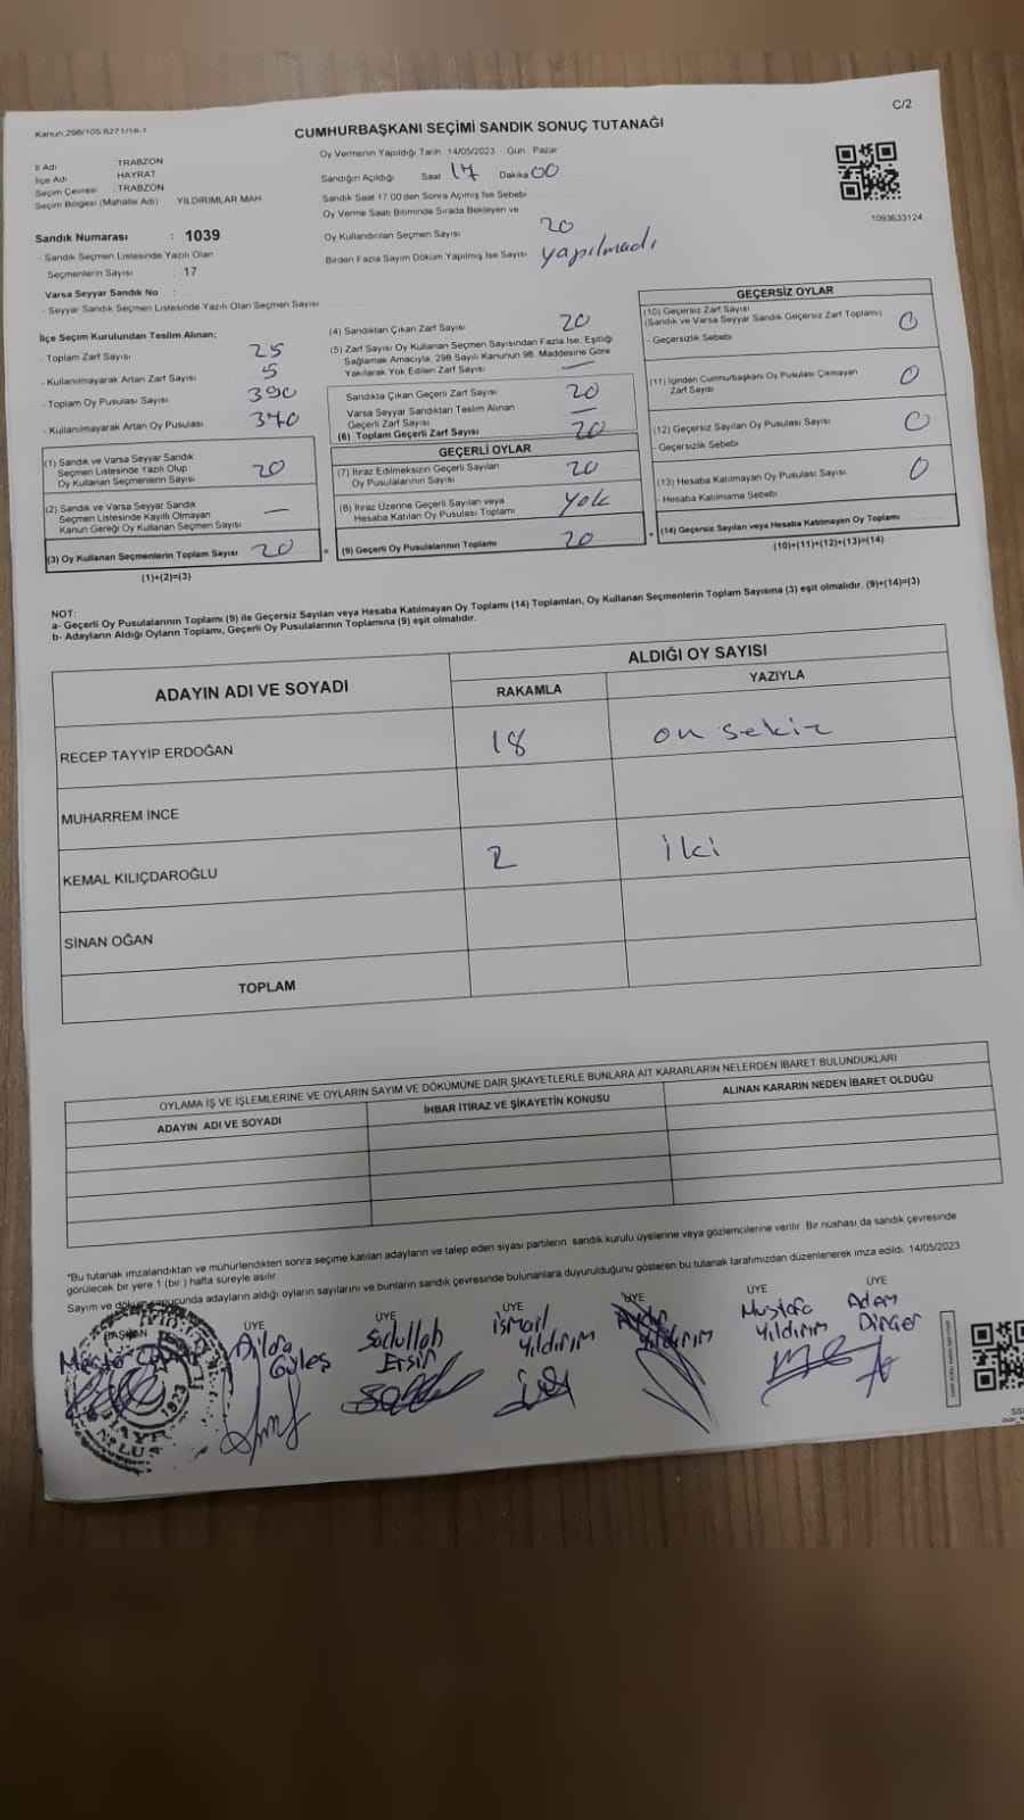 C/2
Kanun:298/105 6271/16-1
CUMHURBAŞKANI SEÇİMİ SANDIK SONUÇ TUTANAĞI
İl Adı TRABZON
İlçe Adı HAYRAT
Seçim Çevresi TRABZON
Seçim Bölgesi (Mahalle Adı) YILDIRIMLAR MAH.
Sandık Numarası : 1039
Sandık Seçmen Listesinde Yazılı Olan
Seçmenlerin Sayısı : 17
Varsa Seyyar Sandık No :
- Seyyar Sandık Seçmen Listesinde Yazılı Olan Seçmen Sayısı
Oy Vermenin Yapıldığı Tarih 14/05/2023 Gün Pazar
Sandığın Açıldığı Saat 17 Dakika 00
Sandık Saat 17:00'den Sonra Açılmış İse Sebebi
Oy Verme Saati Bitiminde Sırada Bekleyen ve
Oy Kullandırılan Seçmen Sayısı 20
Birden Fazla Sayım Döküm Yapılmış İse Sayısı yapılmadı
1093633124
İlçe Seçim Kurulundan Teslim Alınan:
- Toplam Zarf Sayısı 25
- Kullanılmayarak Artan Zarf Sayısı 5
- Toplam Oy Pusulası Sayısı 390
- Kullanılmayarak Artan Oy Pusulası 340
(1) Sandık ve Varsa Seyyar Sandık
Seçmen Listesinde Yazılı Olup
Oy Kullanan Seçmenlerin Sayısı 20
(2) Sandık ve Varsa Seyyar Sandık
Seçmen Listesinde Kayıtlı Olmayan
Kanun Gereği Oy Kullanan Seçmen Sayısı —
(3) Oy Kullanan Seçmenlerin Toplam Sayısı 20
(1)+(2)=(3)
(4) Sandıktan Çıkan Zarf Sayısı 20
(5) Zarf Sayısı Oy Kullanan Seçmen Sayısından Fazla İse, Eşitliği
Sağlamak Amacıyla, 298 Sayılı Kanunun 98. Maddesine Göre
Yakılarak Yok Edilen Zarf Sayısı —
Sandıkta Çıkan Geçerli Zarf Sayısı 20
Varsa Seyyar Sandıktan Teslim Alınan
Geçerli Zarf Sayısı —
(6) Toplam Geçerli Zarf Sayısı 20
GEÇERLİ OYLAR
(7) İtiraz Edilmeksizin Geçerli Sayılan
Oy Pusulalarının Sayısı 20
(8) İtiraz Üzerine Geçerli Sayılan veya
Hesaba Katılan Oy Pusulası Toplamı yok
= (9) Geçerli Oy Pusulalarının Toplamı 20
GEÇERSİZ OYLAR
(10) Geçersiz Zarf Sayısı
(Sandık ve Varsa Seyyar Sandık Geçersiz Zarf Toplamı) 0
- Geçersizlik Sebebi
(11) İçinden Cumhurbaşkanı Oy Pusulası Çıkmayan
Zarf Sayısı 0
(12) Geçersiz Sayılan Oy Pusulası Sayısı 0
- Geçersizlik Sebebi
(13) Hesaba Katılmayan Oy Pusulası Sayısı 0
- Hesaba Katılmama Sebebi
+ (14) Geçersiz Sayılan veya Hesaba Katılmayan Oy Toplamı
(10)+(11)+(12)+(13)=(14)
NOT:
a- Geçerli Oy Pusulalarının Toplamı (9) ile Geçersiz Sayılan veya Hesaba Katılmayan Oy Toplamı (14) Toplamları, Oy Kullanan Seçmenlerin Toplam Sayısına (3) eşit olmalıdır. (9)+(14)=(3)
b- Adayların Aldığı Oyların Toplamı, Geçerli Oy Pusulalarının Toplamına (9) eşit olmalıdır.
ADAYIN ADI VE SOYADI ALDIĞI OY SAYISI
RAKAMLA YAZIYLA
RECEP TAYYİP ERDOĞAN 18 on sekiz
MUHARREM İNCE
KEMAL KILIÇDAROĞLU 2 iki
SİNAN OĞAN
TOPLAM
OYLAMA İŞ VE İŞLEMLERİNE VE OYLARIN SAYIM VE DÖKÜMÜNE DAİR ŞİKAYETLERLE BUNLARA AİT KARARLARIN NELERDEN İBARET BULUNDUKLARI
ADAYIN ADI VE SOYADI İHBAR İTİRAZ VE ŞİKAYETİN KONUSU ALINAN KARARIN NEDEN İBARET OLDUĞU
"Bu tutanak imzalandıktan ve mühürlendikten sonra seçime katılan adayların ve talep eden siyasi partilerin sandık kurulu üyelerine veya gözlemcilerine verilir. Bir nüshası da sandık çevresinde
görülecek bir yere 1 (bir) hafta süreyle asılır.
Sayım ve döküm sonucunda adayların aldığı oyların sayılarını ve bunların sandık çevresinde bulunanlara duyurulduğunu gösteren bu tutanak tarafımızdan düzenlenerek imza edildi. 14/05/2023
BAŞKAN ÜYE ÜYE ÜYE ÜYE ÜYE ÜYE
Sadullah Ersin
İsmail Yıldırım
Yıldırım
Mustafa Yıldırım
Adem Dinçer
1923